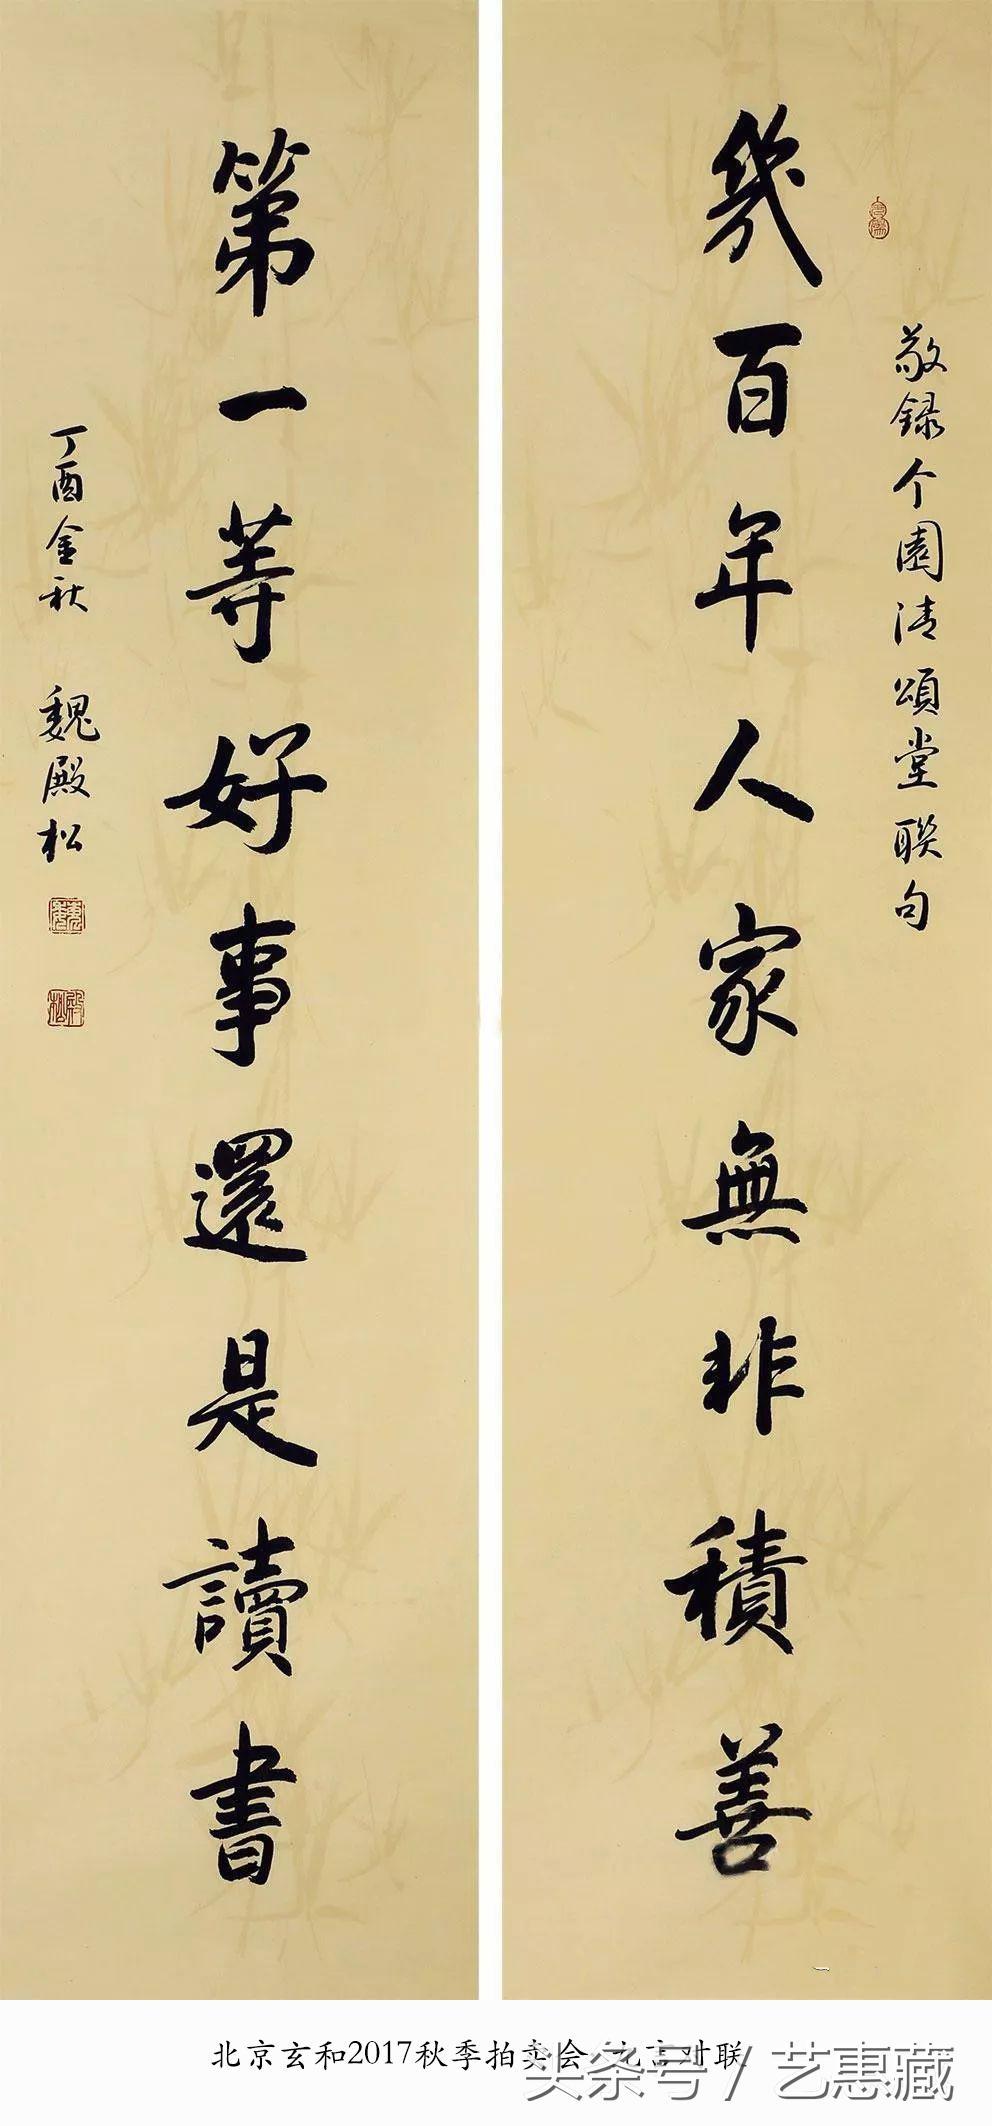 敬録个園清頌堂聯句
幾百年人家無非積善
第一等好事還是讀書
丁酉金秋 魏殿松
北京玄和2017秋季拍卖会 九言对联
头条号 / 艺惠藏